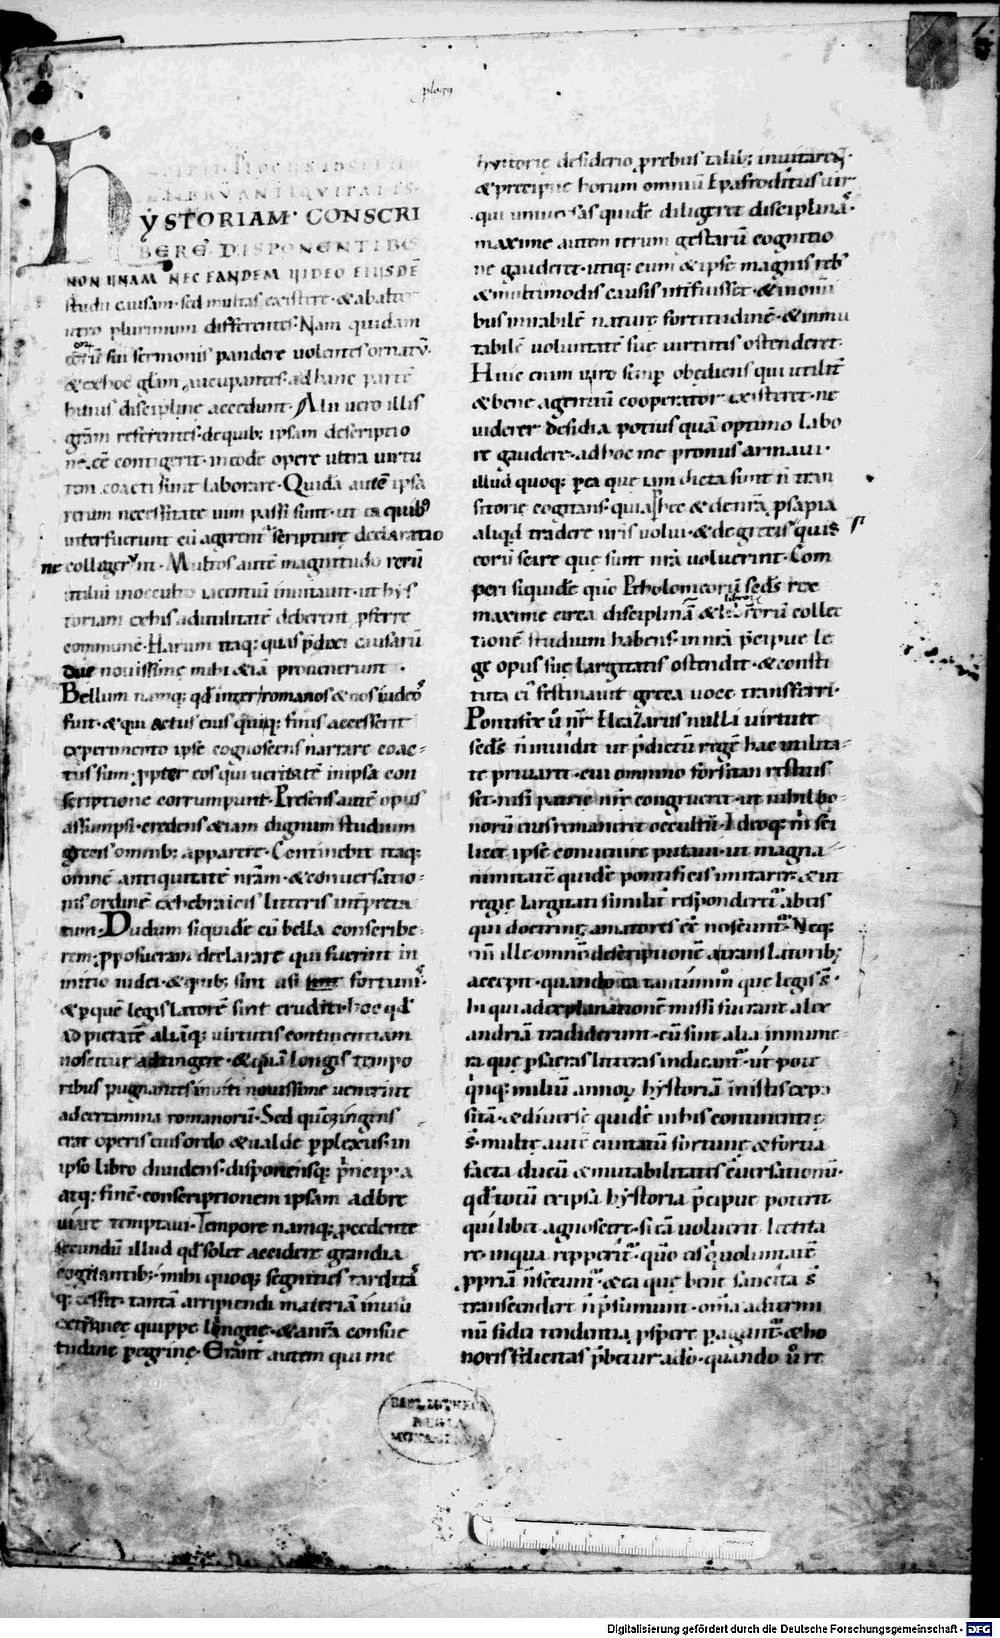 plogus
HYSTORIAM· CONSCRI
BERE DISPONENTIBUS
NON UNAM NEC EANDEM UIDEO EIUSDĒ
studii causam· sed multas existere· & ab alte
utro plurimum differentes· Nam quidam
sui sermonis pandere uolentes ornatū·
& ex hoc gl̄am aucupantes ad hanc partē
huius discipline accedunt· Alii uero illis
gr̄am referentes· de quib; ipsam descriptio
nē cē contigerit· in eodē opere ultra uirtu
tem coacti sunt laborare· Quidā autē ipsa
rerum necessitate uim passi sunt· ut ea quib᷒
interfuerunt cū agerent᷒ scripturę declaratio
ne colligerent· Multos autē magnitudo rerū
utiliū in occulto iacentiū inuitauit· ut hys
toriam ex his ad utilitatē deberent p̄ferre
commune· Harum itaq; quas p̄dixi causarū
due nouissime mihi &iā prouenerunt·
Bellum namq; qd̄ inter romanos & nos iudeos
fuit· & qui actus eius quiq; finis accesserit
experimento ipse cognoscens narrare coac-
tus sum· ꝓpter eos qui ueritatē in ipsa con
scriptione corrumpunt· Presens autē opus
assumpsi· credens &iam dignum studium
grecis omnib; apparere· Continebit itaq;
omnē antiquitatē nr̄am· & conuersatio-
nis ordinē ex hebraicis litteris int̄preta
tum· Dudum siquidē cū bella conscribe-
rem· ꝓposueram declarare qui fuerint in
initio iudei· & quib; sint usi fortunis·
& p̄ quē legis latorē sint eruditi· hoc qd̄
ad pietatē aliāq; uirtutis continentiam
noscitur adtingere· & quia longis tempo
ribus pugnantes inuiti nouissime uenerint
ad certamina romanorū· Sed quō ingens
erat operis eius ordo & ualde ꝑplexus· in
ipso libro diuidens· disponensq; p̄ncipia
atq; finē· conscriptionem ipsam adbre
uiare temptaui· Tempore namq; p̄cedente
secundū illud qd̄ solet accidere grandia
cogitantib;· mihi quoq; segnities tarditas
q; cessit· tantā arripiendi materiā inusū
extraneę quippe linguę· & a nr̄a consue
tudine peregrinę· Erant autem qui me
hystorię desiderio ꝓ rebus talib; inuitarent·
& precipue horum omniū Epafroditus uir
qui uniuersas quidē diligeret disciplinas·
maxime autem rerum gestarū cognitio
ne gauderet· utiq; cum & ipse magnis reb᷒
& multimodis causis int̄fuisset· & in omni
bus mirabilē naturę fortitudinē· & inmu
tabilē uoluntatē suę uirtutis ostenderet·
Huic enim uiro semp̄ obediens qui utiliū
& bene agentiū cooperator existeret· ne
uiderer desidia potius quā optimo labo
re gaudere· ad hoc me pronus armaui·
illud quoq; p̄ ea que iam dicta sunt n̄ tran
sitorie cogitans· quia & de nr̄a ꝓsapia
aliqd̄ tradere nr̄is uolui· & de grecis quis
eorū scire que sunt nr̄a uoluerint· Com
peri siquidē quō Ptholomeorū sedˢ rex
maxime circa disciplinā & librorū collec
tionē studium habens· in nr̄a p̄cipue le
ge opus suę largitatis ostendit· & consti
tuta ei᷒ festinauit greca uoce transferri·
Pontifex ū nr̄ Eleazarus nulli uirtute
sedˢ n̄ inuidit ut p̄dictū regē hac utilita-
te priuaret· cui omnino forsitan restitis
sit· nisi patrie nr̄e congruerit· ut nihil bo-
norū eius remaneret occultū· Ideoq; m̄ sci
licet ipse conuenire putaui· ut magna-
nimitatē quidē pontificis imitarer· & in
regię largitati similit̄ responderē· ab eis
qui doctrinę amatores cē noscunt᷒· Neq;
n̄ ille omnē descriptionē a translatorib;
accepit· quando ea tantūm̊ que legis s̄·
hi qui ad explanationē missi fuerant alex
andriā tradiderunt· cū sint alia innume-
ra que ꝑ sacras litteras indicant᷒· ut pote
qnq; miliū annoꝝ hystoriā in istis expo
sitā· & diuersę quidē in his continent᷒
s̄· multę autē euentuū fortunę & fortia
facta ducū & mutabilitates cuersationū·
qd̄ totū ex ipsa hystoria p̄cipue poterit
qui libet agnoscere· si eā uoluerit lectita
re· in qua repperit᷒· quō eis q̄ uoluntatē
ꝓpriā n̄ secunt᷒· & ea que bene sancita s̄
transcendere n̄ p̄sumunt· om̄a ad termi
nū fidei tendentia ꝓspere ꝑagunt᷒· & ho
noris felicitas p̄betur a dō· quando ū re
BIBLIOTHECA
REGIA
MONACENSIS
Digitalisierung gefördert durch die Deutsche Forschungsgemeinschaft - DFG